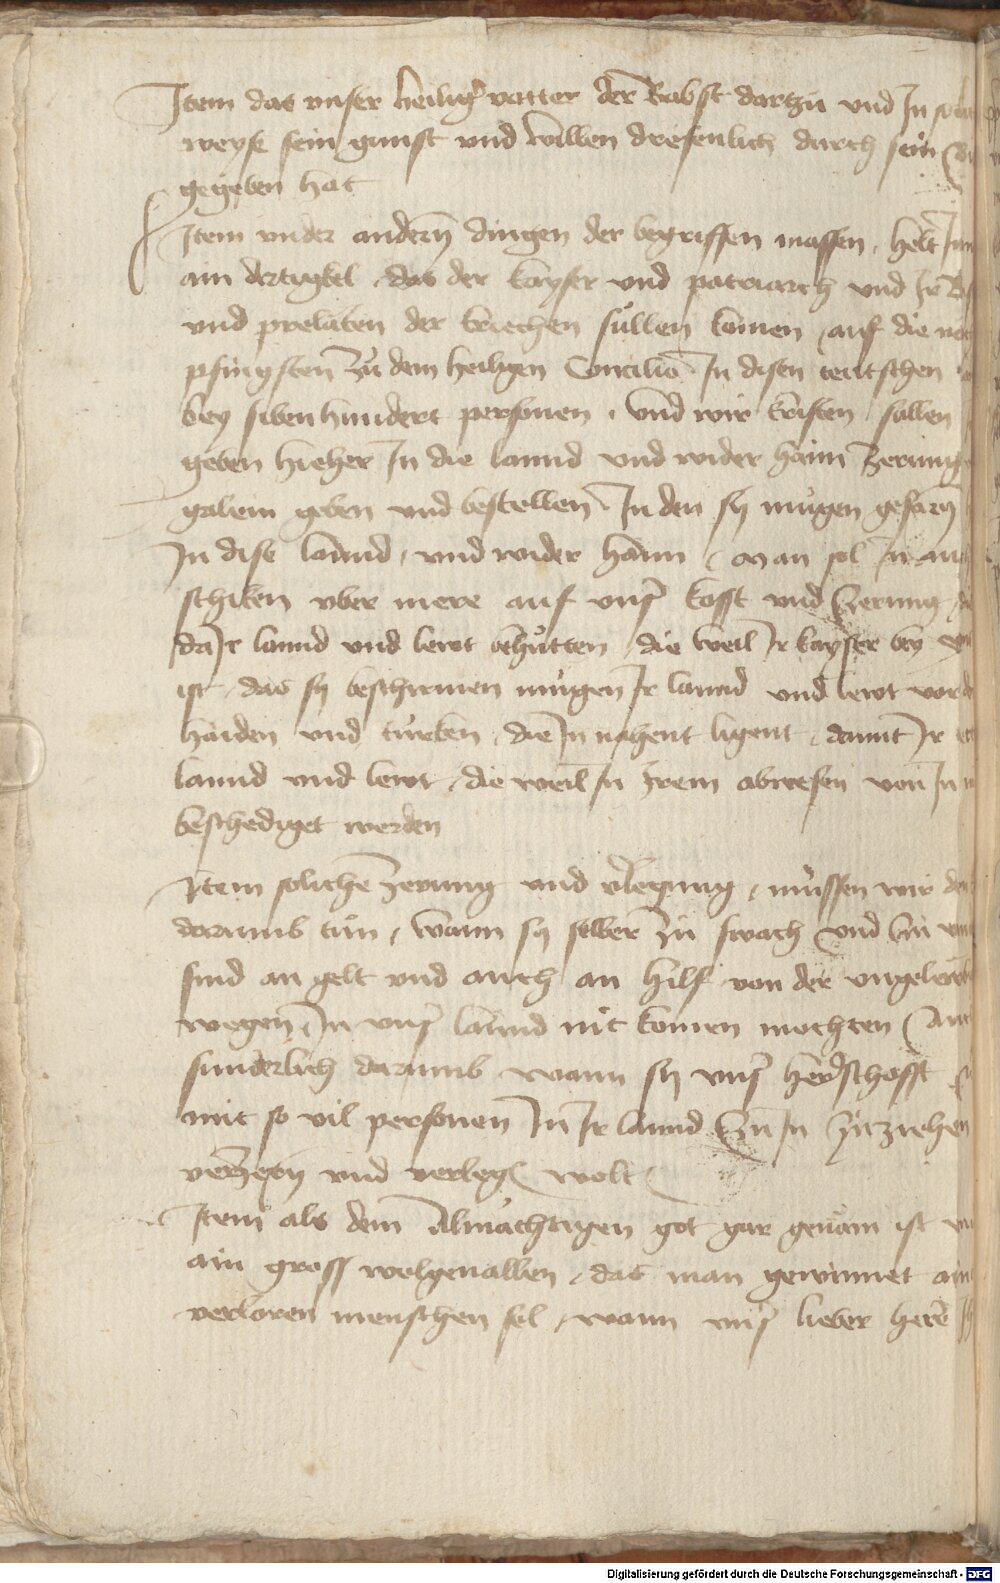 Item das vnser heilig vatter der Babst dartzu vnd In
weyse sein gunst vnd willen drefenlich durch sein
gegeben hat
Item vnder andern dingen der begriffen massen, helt Inn
ain dertigkel, das der kayser vnd patriarch vnd Ir
vnd prelaten der kriechen süllen komen, auf die
pfingsten zu dem heiligen Concilio In disen teutschen
bey siben hundert personen, vnd wir kristen sullen
geben hieher In die lannd vnd wider haim zerung
galein geben vnd bestellen In den sy mügen gefarn
In dise lannd, vnd wider haim, man sol In
schiken vber mere auf vnser kosst vnd zerung,
da Ir lannd vnd lewt behütten, die weil Ir kayser bey
ist, das sy beschirmen mügen Ir lannd vnd lewt vor
haiden vnd türken, die In nahent ligent, damit Ir
lannd vnd lewt, die weil In Irem abwesen von In
beschediget werden
Item soliche zerung vnd verlegung, müssen wir
darumb tun, wann sy selber zu swach vnd
sind an gelt vnd auch an hilf von der vngelewb
wegen, In vnser lannd nit komen mochten
sunderlich darumb wann sy vnser herschafft
mit so vil personen In Ir lannd zu In zuziehen
verzern vnd verlegen wolt
Item als dem Almächtigen got gar genäm ist
ain gross wolgeuallen, das man gewinnet
verloren menschen sel, wann vnser lieber herre
Digitalisierung gefördert durch die Deutsche Forschungsgemeinschaft - DFG